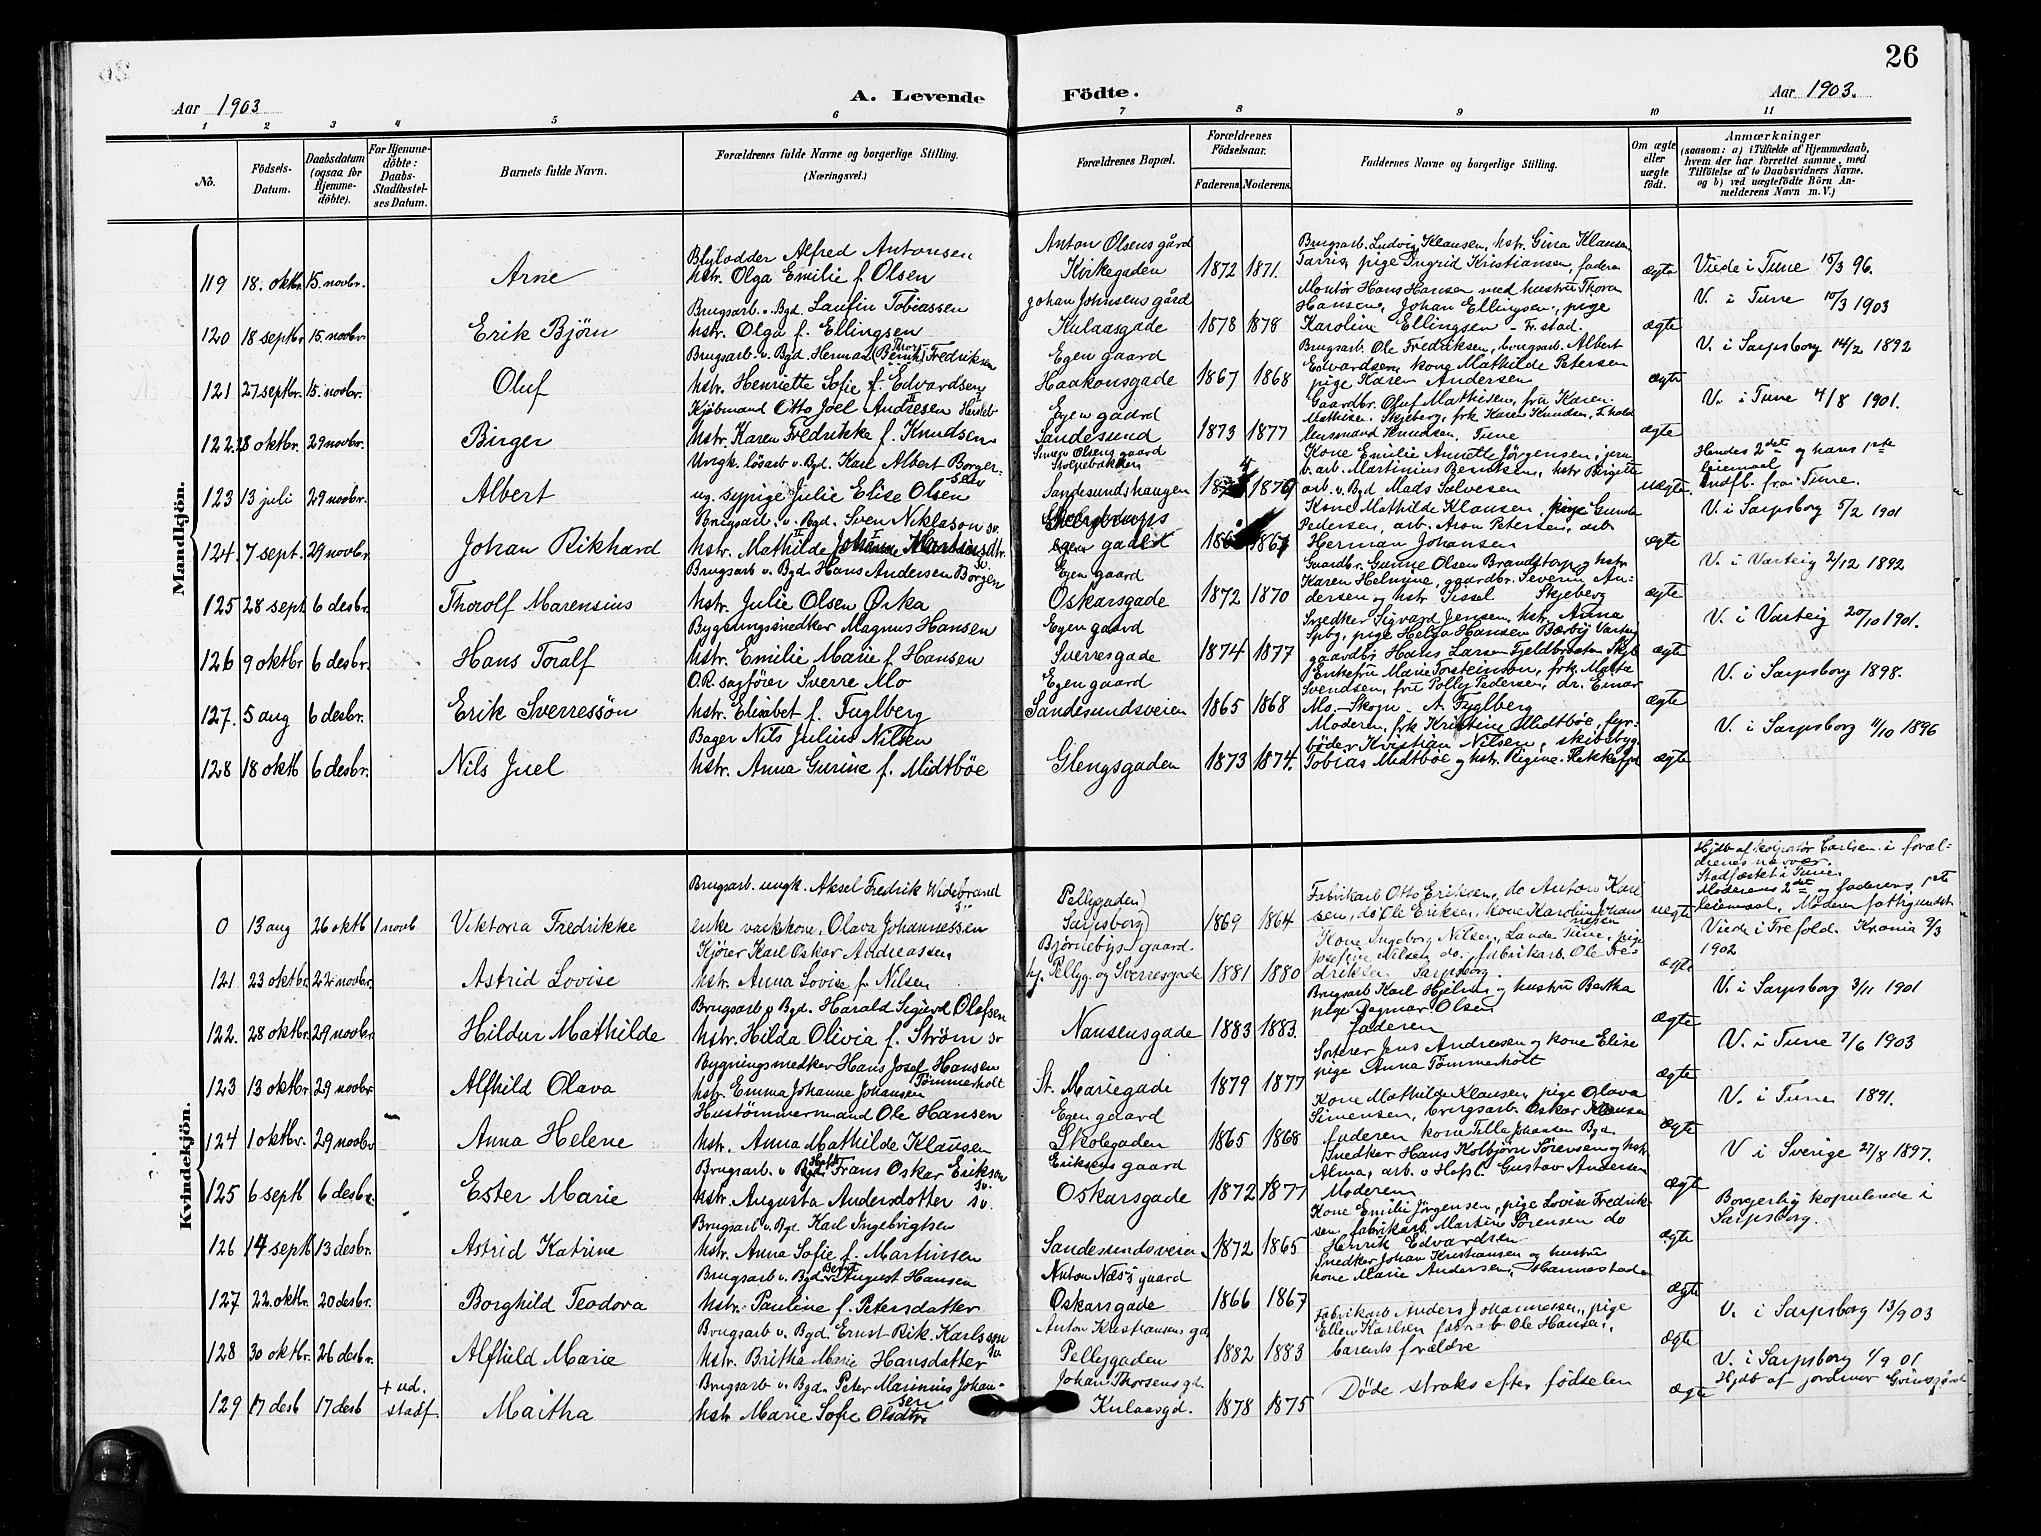 26
Aar 1903
A. Levende Födte.
Aar 1903.
1 2 3 4 5 6 7 8 9 10 11
No.
Födsels-Datum.
Daabsdatum (ogsaa for Hjemme-döbte).
For Hjemme-döbte: Daabs-Stadfæstel-ses Datum.
Barnets fulde Navn.
Forældrenes fulde Navne og borgerlige Stilling. (Næringsvei.)
Forældrenes Bopæl.
Forældrenes Födselsaar.
Faderens. Moderens.
Faddernes Navne og borgerlige Stilling.
Om ægte eller uægte födt.
Anmærkninger
(saasom: a) i Tilfælde af Hjemmedaab,
hvem der har forrettet samme, med
Tilföielse af to Daabsvidners Navne,
og b) ved uægtefödte Börn An-
melderens Navn m. V.)
Mandkjön.
Blylodder Alfred Antonsen
Anton Olsens gård
Brugsarb. Ludvig Klausen, hstr. Gina Klausen
119 18. oktbr. 15. novbr. Arne hstr. Olga Emilie f. Olsen Kirkegaden 1872 1871. pige Ingrid Kristiansen, faderen ægte Viede i Tune 15/3 96.
Brugsarb. v. Bgd. Laufin Tobiassen
Johan Johnsens gård
Montör Hans Hansen med hustru Thora
Hansen, Johan Ellingsen, pige
120 18 septbr 15. novbr. Erik Björn hstr. Olga f. Ellingsen Kulaasgade 1878 1878 Karoline Ellingsen - Fr.stad. ægte V. i Tune 10/3 1903
Brugsarb. v. Bgd. Herman Fredriksen
Egen gaard
Brugsarb. Ole Fredriksen, brugsarb. Albert
Edvardsen, kone Mathilde Petersen
121 27 septbr. 15. novbr. Oluf hstr. Henriette Sofie f. Edvardsen Haakonsgade 1867 1868 pige Karen Andersen ægte V. i Sarpsborg 14/2 1892
Kjöbmand Otto Joel Andresen
Egen gaard
Gaardbr. Oluf Mathisen, fru Karen
Mathisen. Skjeberg, frk Karen Knudsen, F.hald
122. 28 oktbr. 29 novbr. Birger hstr. Karen Fredrikke f. Knudsen. Sandesund 1873 1877 lensmand Knudsen. Tune ægte V. i Tune 4/8 1901.
Ungk. lösarb v. Bgd. Karl Albert Borger-
sen
Simen Olsens gaard
Stolpebakken
Kone Emilie Annette Jørgensen, jern
b. arb. Martinius Berntsen, hstr Birgitte
Hendes 2det og hans 1ste
leiemaal
123 13 juli 29 novbr. Albert ug. sypige Julie Elise Olsen Sandesundshaugen 1876 arb. v. Bgd Mads Salvesen uægte. Indfl. fra Tune.
Brugsarb. v. Bgd. Sven Niklason sv.
Kone Mathilde Klausen, pige Gunda
Pedersen, arb. Aron Petersen, arb
124. 7 sept. 29 novbr. Johan Rikhard hstr. Mathilde egen gaard 1867 Herman Johansen ægte V. i Sarpsborg 5/2 1901
Brugsarb v. Bgd. Hans Andersen Borgen
Egen gaard
Gaardbr. Gunne Olsen Brandstorp og hstr
Karen Helmine, gaardbr. Severin An-
125 28 sept 6 desbr. Thorolf Marensius hstr. Julie Olsen Orka Oskarsgade 1872 1870 dersen og hstr Sissel Skjeberg ægte V. i Varteig 2/12 1892
Bygningssnedker Magnus Hansen
Egen gaard
Snedker Sigvard Jensen, hstr Anna
Spbg, pige Helga Hansen Bærby Varteig
126 9 oktbr 6 desbr. Hans Toralf hstr. Emilie Marie f. Hansen Sverresgade 1874 1877 gaardbr Hans Larsen Fjeldbraaten Skjb ægte V. i Varteig 20/10 1901.
O.R. sagförer Sverre Mo
Egen gaard
Enkefru Marie Torsteinson, frk. Malla
Svendsen, fru Polly Pedersen, dr. Einar
127. 5 aug 6 desbr. Erik Sverressön hstr. Elisabet f. Fuglberg Sandesundsveien 1865 1868 Mo. - Skogn - A. Fuglberg ægte V. i Sarpsborg 1898.
Bager Nils Julius Nilsen
Moderen, frk Kristine Midtböe, fyr-
böder Kristian Nilsen, skibsbyg.
128 18 oktb 6 desbr. Nils Juel hstr. Anna Gurine f. Midtböe Glengsgaden 1873 1874. Tobias Midtböe og hstr. Regine. Flekkefjd ægte V. i Sarpsborg 11/10 1896
Kvindekjön.
Hjdb af kolportör Carlsen i foræl-
drenes nærvær.
Stadfæstet i Tune
Moderens 2det og faderens 1ste
leiemaal. Moderen fattigundst.
Brugsarb. ungk. Aksel Fredrik Widebrand
Pellygaden
Fabrikarb Otto Eriksen, do Anton Karl-
0 13 aug 26 oktb 1 novb Viktoria Fredrikke enke vaskekone. Olava Johannessen Sarpsborg 1869 1864 sen, do Ole Eriksen, kone Karoline Johan
nesen uægte
Kjörer Karl Oskar Andreassen
Björnebys gaard.
Kone Ingeborg Nilsen, Lande Tune, pige
Josefine Nilsen do, fabrikarb. Ole Fre-
121 23 oktbr. 22 novbr. Astrid Lovise hstr. Anna Lovise f. Nilsen hj. Pellyg. og Sverresgade 1881 1880 driksen Sarpsborg. ægte Viede i Trefold. Krania 9/3
1902
Brugsarb v Bgd. Harald Sigurd Olafsen
Brugsarb Karl Hjelm og hustru Bertha
pige Dagmar Olsen
122. 28 oktbr. 29 novbr. Hildur Mathilde hstr. Hilda Olivia f. Ström sv Nansensgade 1883 1883. faderen ægte V. i Sarpsborg 3/11 1901
Bygningssnedker Hans Josef Hansen
Tömmerholt
Sorterer Jens Andresen og kone Elise
123 13 oktbr. 29 novbr Alfhild Olava hstr. Emma Johanne Johansen St. Mariegade 1879 1877 pige Anna Tömmerholt ægte V. i Tune 7/6 1903
Hustömmermand Ole Hansen
Egen gaard
Kone Mathilde Klausen, pige Olava
Simensen, brugsarb. Oskar Klausen
124 1 oktbr. 29 novbr Anna Helene hstr. Anna Mathilde Klausen Skolegaden 1865 1868 faderen kone Tilla Johansen Bgd. ægte V. i Tune 1891.
Brugsarb. v Bgd. Frans Oskar Erikson
sv.
Eriksens gaard
Snedker Hans Kolbjörn Sörensen og hstr
Alma, arb. v. Hafsl. Gustav Andersen
125 6 septb 6 desbr Ester Marie hstr. Augusta Andersdotter sv. Oskarsgade 1872 1877 Moderen ægte V i Sverige 27/8 1897.
Brugsarb v. Bgd Karl Ingebrigtsen
Kone Emilie Jörgensen, pige Lovise Fredrik-
sen, fabrikarb. Martin Sörensen do
126 14 septb 13 desbr. Astrid Katrine hstr. Anna Sofie f. Martinsen Sandesundsveien 1872 1865 Henrik Edvardsen ægte Borgerlig kopulerede i
Sarpsborg.
Brugsarb v. Bgd Bernt August Hansen
Anton Næss' gaard
Snedker Johan Kristiansen og hustru
kone Marie Andersen, Hannestad
127 22. oktbr. 20 desbr. Borghild Teodora hstr. Pauline f. Petersdatter Oskarsgade 1866 1867 ægte V. i Sarpsborg 13/9 03
Brugsarb v. Bgd. Ernst Rik. Karlsson
sv.
Anton Kristiansens gd
Fabrikarb Anders Johannessen, pige
Ellen Karlsen fabr arb Ole Hansen,
128 30 oktbr. 26 desbr. Alfhild Marie hstr. Britha Marie Hansdatter Pellygaden 1882 1883 barnets forældre ægte V. i Sarpsborg 1/9 01
Brugsarb v. Bgd. Peter Marinius Johan-
sen
Johan Thorsens gd.
129 17 desb 17 desb + ud. stadf Martha hstr. Marie Sofie Olsdtr. Kulaasgd. 1878 1875 Döde straks efter födselen ægte Hjdb af jordmor Grimsgård